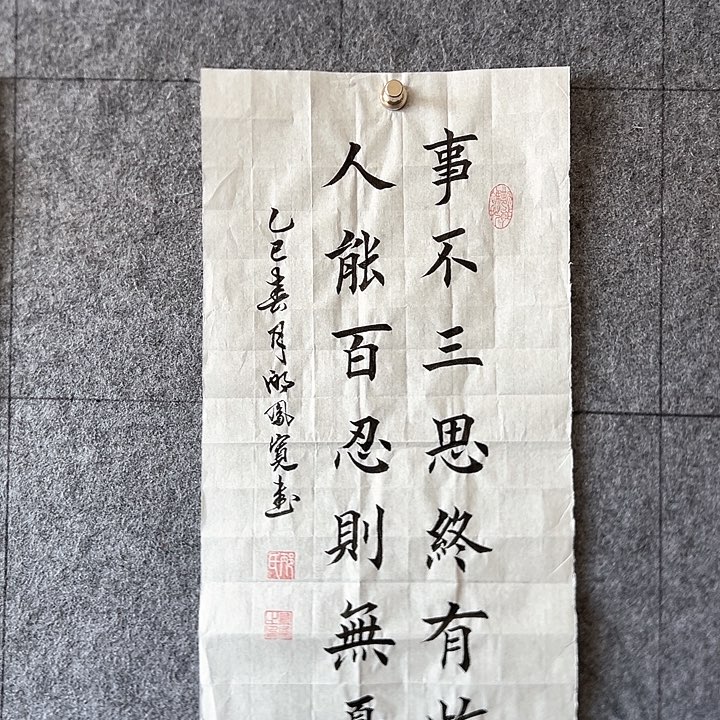 事不三思終有
人能百忍則無
乙巳春月鳳寬書